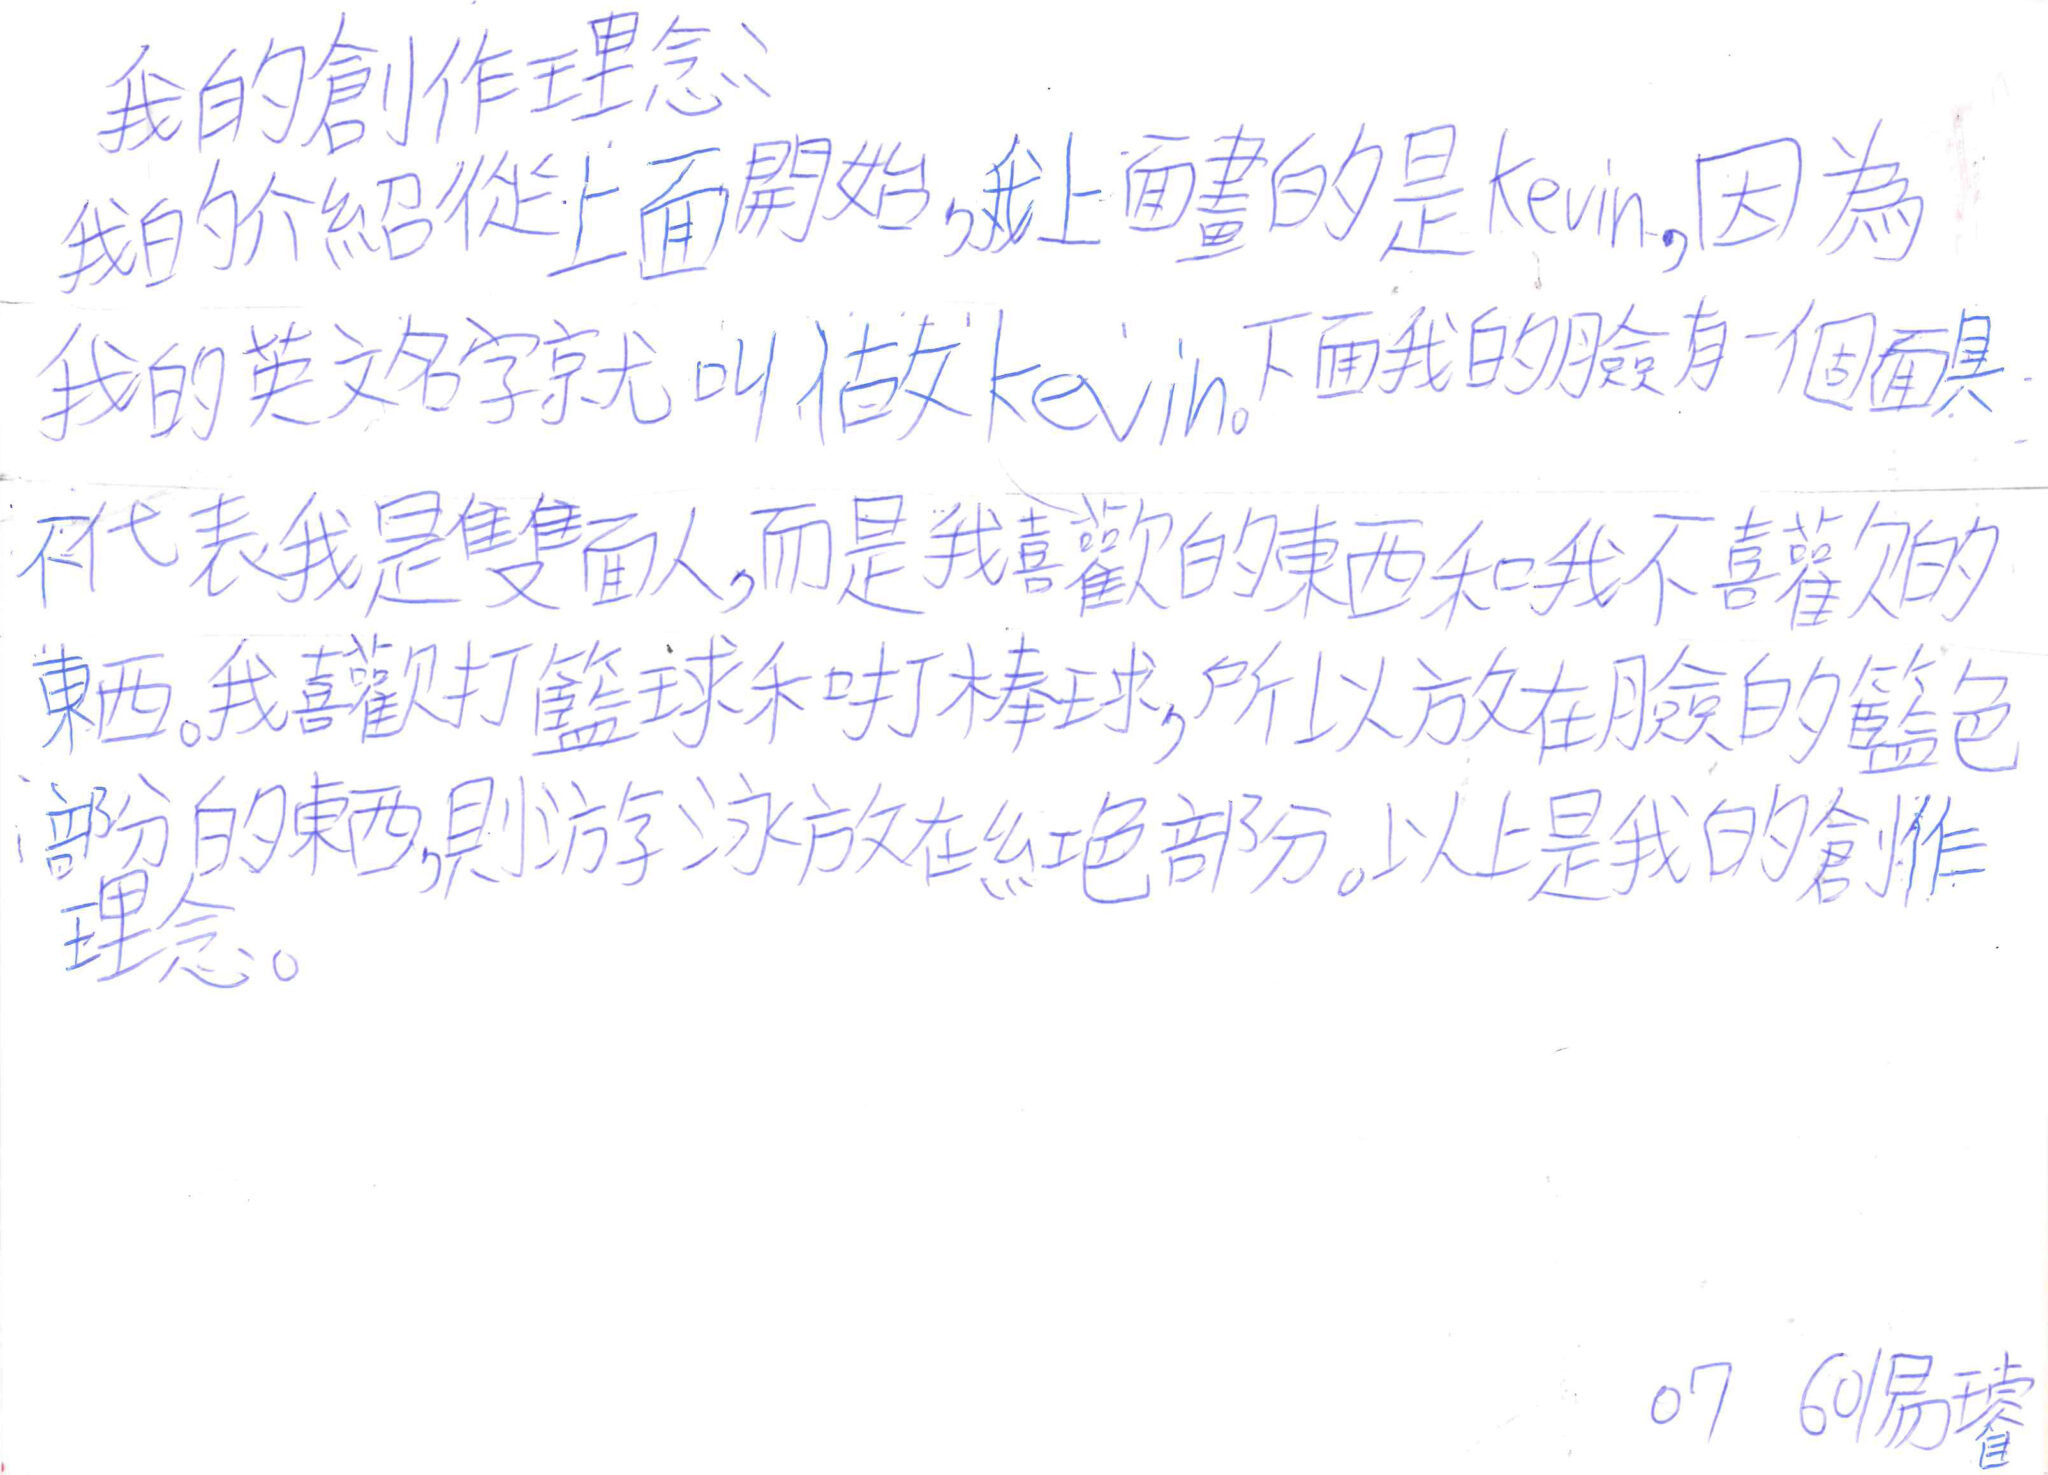 我的創作理念:
我的介紹從上面開始,我上面畫的是kevin,因為
我的英文名字就叫做kevin。下面我的臉有一個面具
不代表我是雙面人,而是我喜歡的東西和我不喜歡的
東西。我喜歡打籃球和打棒球,所以放在臉的籃色
部分的東西,則游泳放在紅色部分。以上是我的創作
理念。
07 601易璿